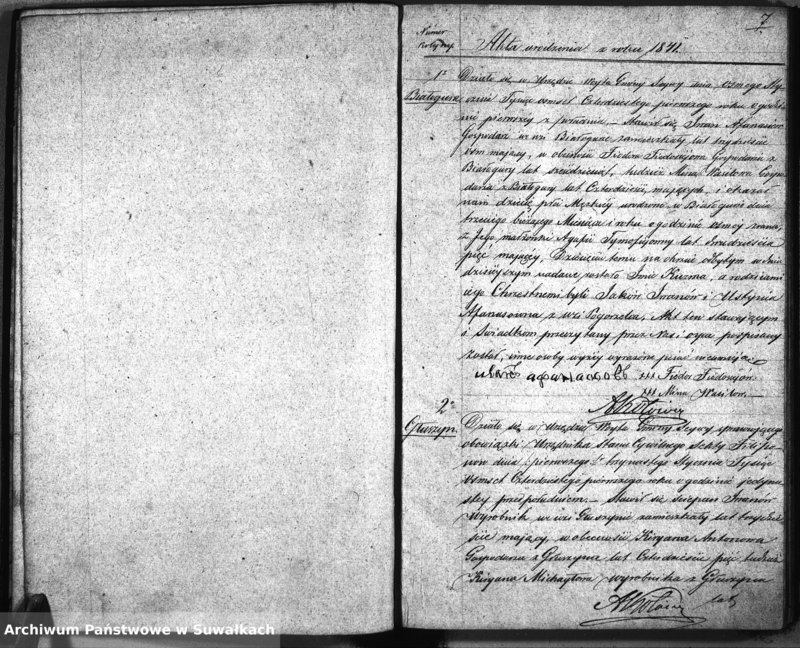 7
Numer
Kolejny
Akta urodzenia z roku 1841.
1.
Białogury
Działo się w Urzędzie Wójta Gminy Sejny dnia osmego Sty-
cznia Tysiąc ośmset Czterdziestego pierwszego roku o godzi-
nie pierwszej z południa. — Stawił się Iwan Afanasiów
Gospodarz w wsi Białogurze zamieszkały lat trzydzieści
ośm mający, w obecności Fiedora Fiedorajowa Gospodarza z
Białogury lat sześćdziesiąt, tudzież Mina Wasilowa Gospo-
darza z Białogury lat Czterdzieści, mających, i okazał
nam dziecię płci Męzkiej urodzone w Białogurze dnia
trzeciego bieżącego Miesiąca i roku o godzinie osmej zrana,
z Jego małżonki Agafii Tymofiejowny lat dwadzieścia
pięć mającej, Dziecięciu temu na chrzcie odbytym w dniu
dzisiejszym nadane zostało Imie Kuzma, a rodzicami
jego Chrzestnemi byli Jaków Iwanów i Ustynia
Afanasiowna z wsi Pogorzelca, Akt ten stawającym
i Swiadkom przeczytany przez Nas i ojca podpisany
został, inne osoby wyżej wyrażone pisać nieumieją.
иванъ афанасовъ XXX Fiedor Fiedorajów.
XXX Mina Wasilow. —
2.
Głuszyn.
Działo się w Urzędzie Wójta Gminy Sejny sprawującego
obowiązki Urzędnika Stanu Cywilnego Sekty Filipo-
nów dnia pierwszego / trzynastego Stycznia Tysiąc
ośmset Czterdziestego pierwszego roku o godzinie jedyna-
stej przed południem. — Stawił się Sciepan Iwanów
Wyrobnik w wsi Głuszynie zamieszkały lat trzydzie-
ście mający, w obecności Kiryana Antonowa
Gospodarza z Głuszyna lat Czterdzieście pięć tudzież
Kiryana Michayłowa wyrobnika z Głuszyna
lat
Archiwum Państwowe w Suwałkach